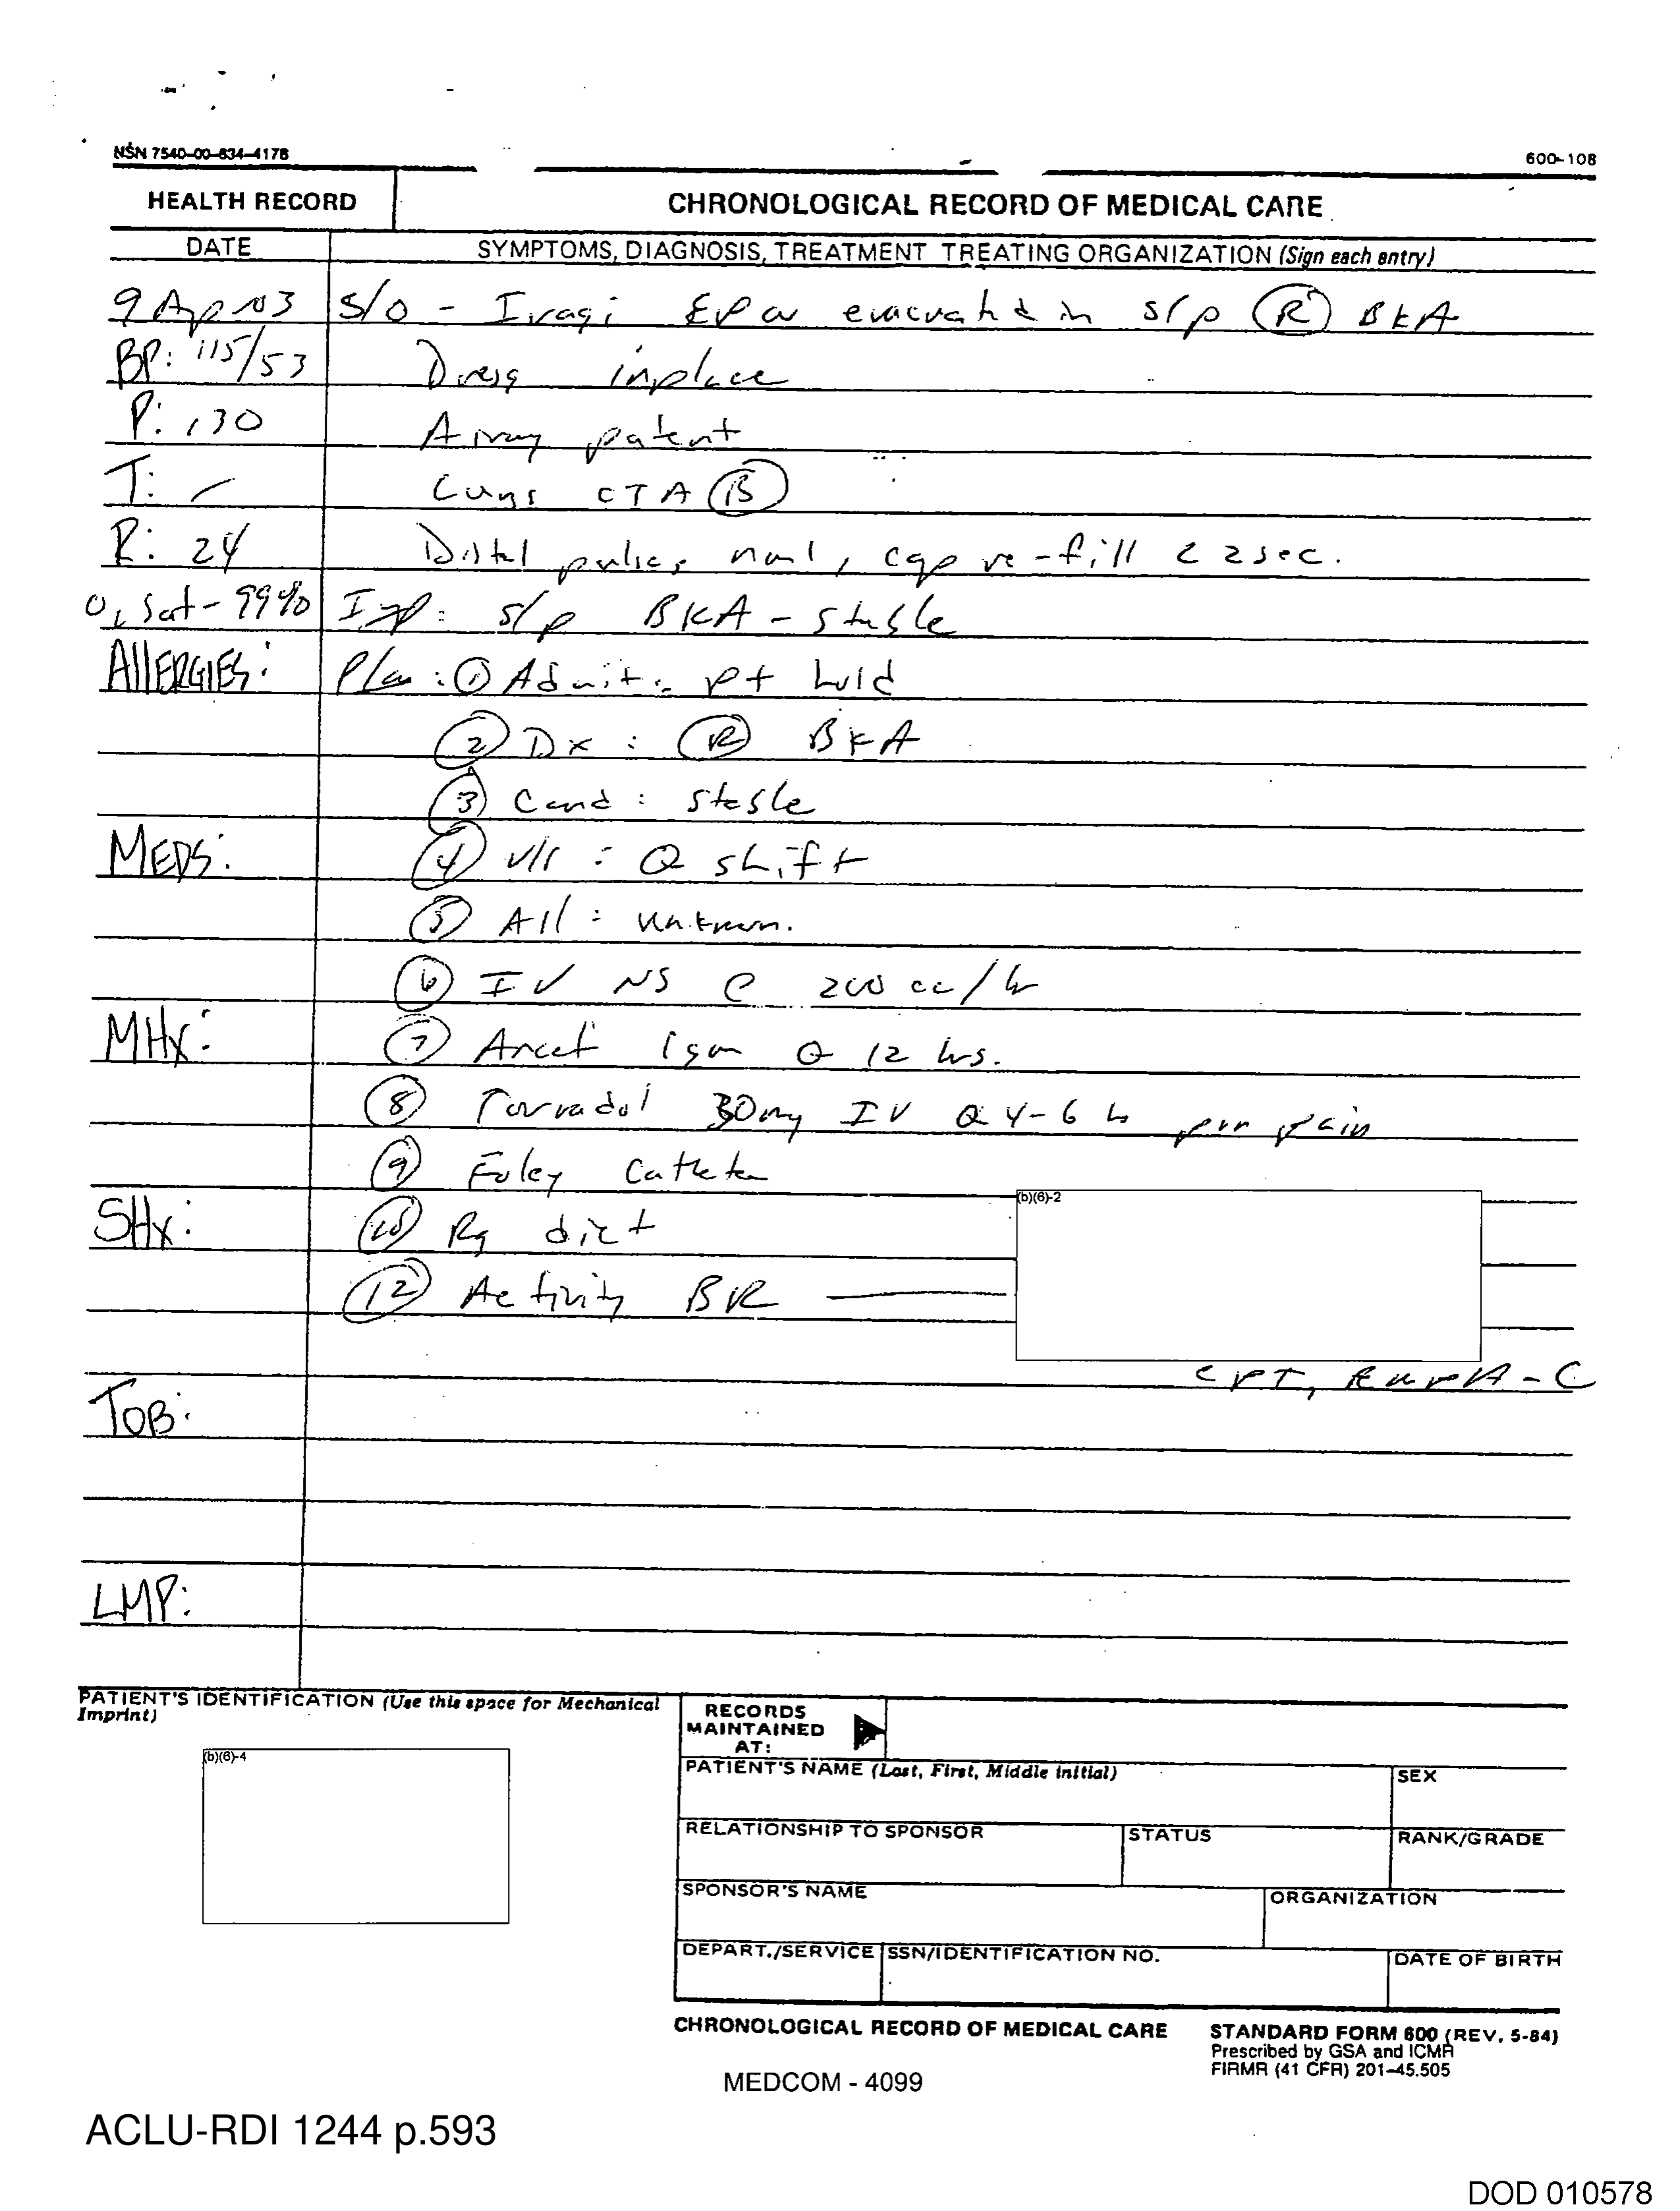 NSN 7540-00-634-4176
600-108
HEALTH RECORD
CHRONOLOGICAL RECORD OF MEDICAL CARE
DATE
SYMPTOMS, DIAGNOSIS, TREATMENT TREATING ORGANIZATION (Sign each entry)
9 Apr 03 S/O - Iraqi EPW evacuated in s/p (R) BKA
BP: 115/53 Dressg inplace
P: 130 Airway patent
T: - Lungs CTA (B)
R: 24 Distal pulses nml, cap re-fill < 2 sec.
O2 Sat - 99% Imp: s/p BKA - stable
ALLERGIES: Plan: (1) Admit: pt hold
(2) Dx: (R) BKA
(3) Cond: stable
MEDS: (4) V/S: Q shift
(5) All: unknown.
(6) IV NS @ 200 cc/hr
MHx: (7) Ancef 1gm Q 12 hrs.
(8) Torradol 30mg IV Q 4-6 h prn pain
(9) Foley Catheter
SHx: (10) Rg diet
(12) Activity BR
(b)(6)-2
CPT,
TOB:
LMP:
PATIENT'S IDENTIFICATION (Use this space for Mechanical
Imprint)
(b)(6)-4
RECORDS
MAINTAINED
AT:
PATIENT'S NAME (Last, First, Middle initial)
SEX
RELATIONSHIP TO SPONSOR
STATUS
RANK/GRADE
SPONSOR'S NAME
ORGANIZATION
DEPART./SERVICE
SSN/IDENTIFICATION NO.
DATE OF BIRTH
CHRONOLOGICAL RECORD OF MEDICAL CARE
STANDARD FORM 600 (REV. 5-84)
Prescribed by GSA and ICMR
FIRMR (41 CFR) 201-45.505
MEDCOM - 4099
ACLU-RDI 1244 p.593
DOD 010578